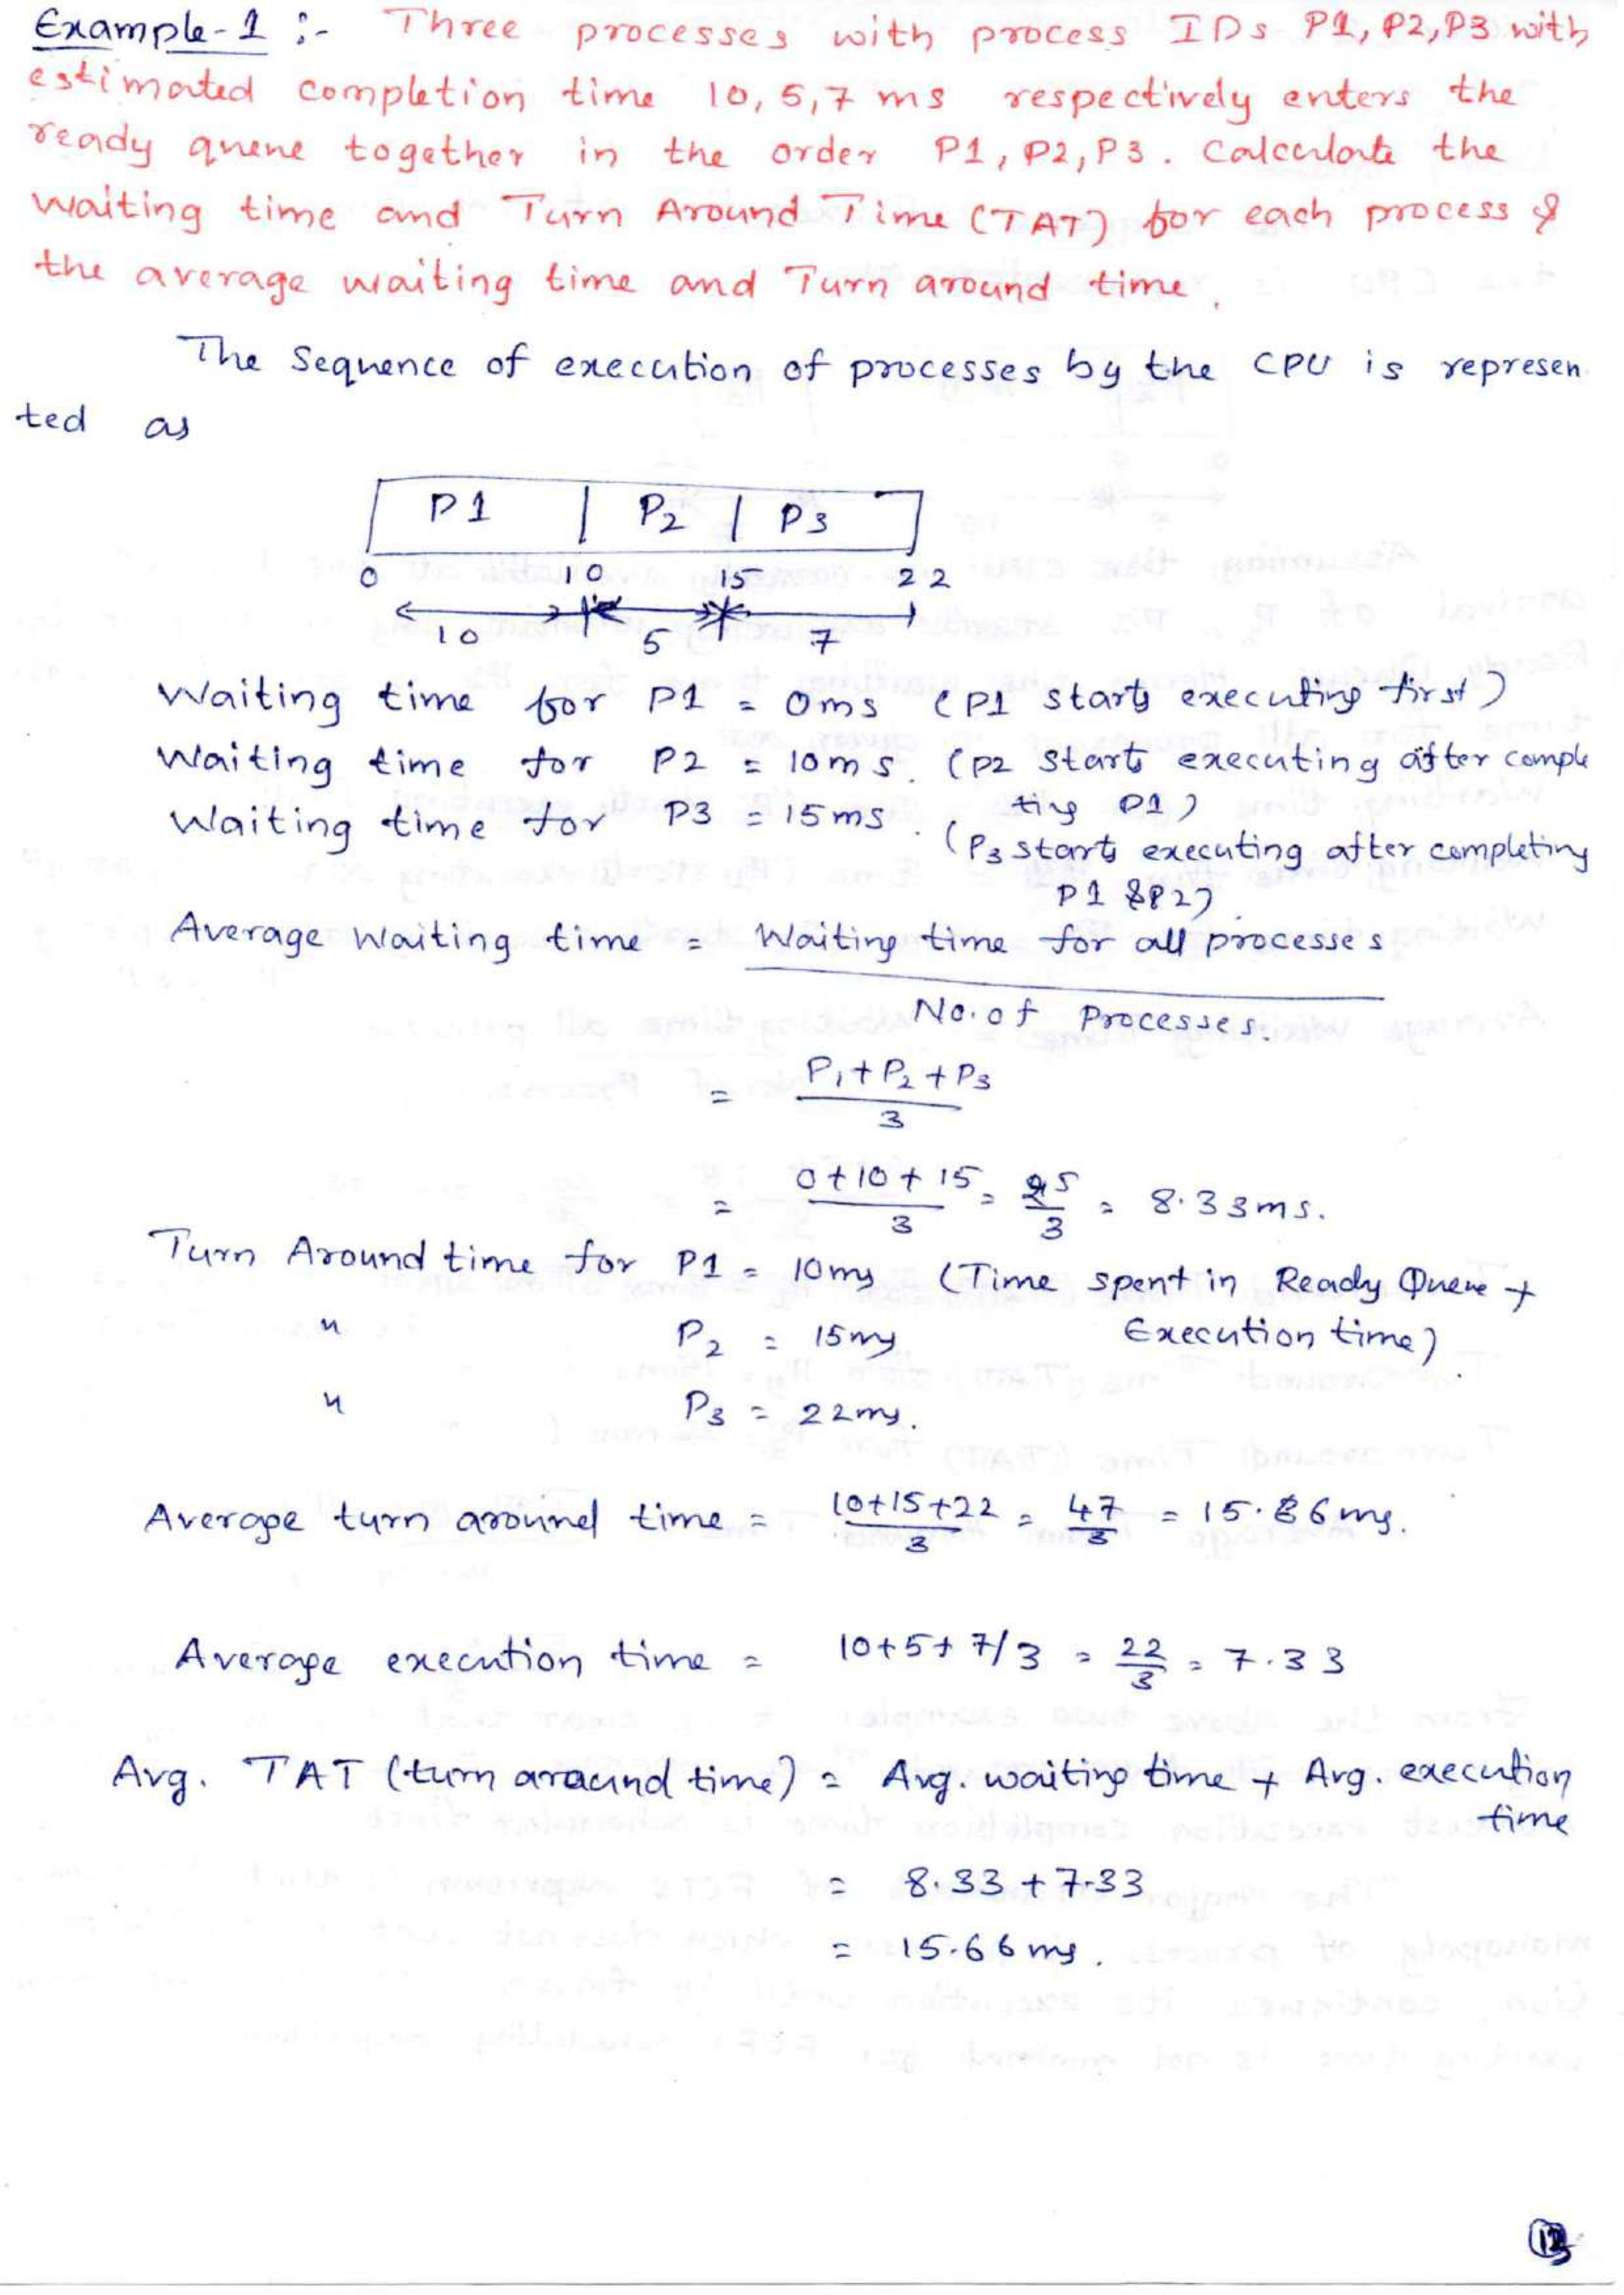 Example-1 :- Three processes with process IDs P1, P2, P3 with
estimated completion time 10, 5, 7 ms respectively enters the
ready queue together in the order P1, P2, P3. Calculate the
waiting time and Turn Around Time (TAT) for each process &
the average waiting time and Turn around time.
The Sequence of execution of processes by the CPU is represen
ted as
P1 | P2 | P3
0 10 15 22
10 5 7
Waiting time for P1 = 0ms (P1 starts executing first)
Waiting time for P2 = 10ms. (P2 starts executing after comple
ting P1)
Waiting time for P3 = 15ms. (P3 starts executing after completing
P1 & P2)
Average Waiting time = Waiting time for all processes
No. of Processes.
= P1 + P2 + P3
3
= 0+10+15 / 3 = 25 / 3 = 8.33ms.
Turn Around time for P1 = 10ms (Time spent in Ready Queue +
" P2 = 15ms Execution time)
" P3 = 22ms.
Average turn around time = 10+15+22 / 3 = 47 / 3 = 15.66ms.
Average execution time = 10+5+7/3 = 22 / 3 = 7.33
Avg. TAT (turn araound time) = Avg. waiting time + Avg. execution
time
= 8.33 + 7.33
= 15.66ms.